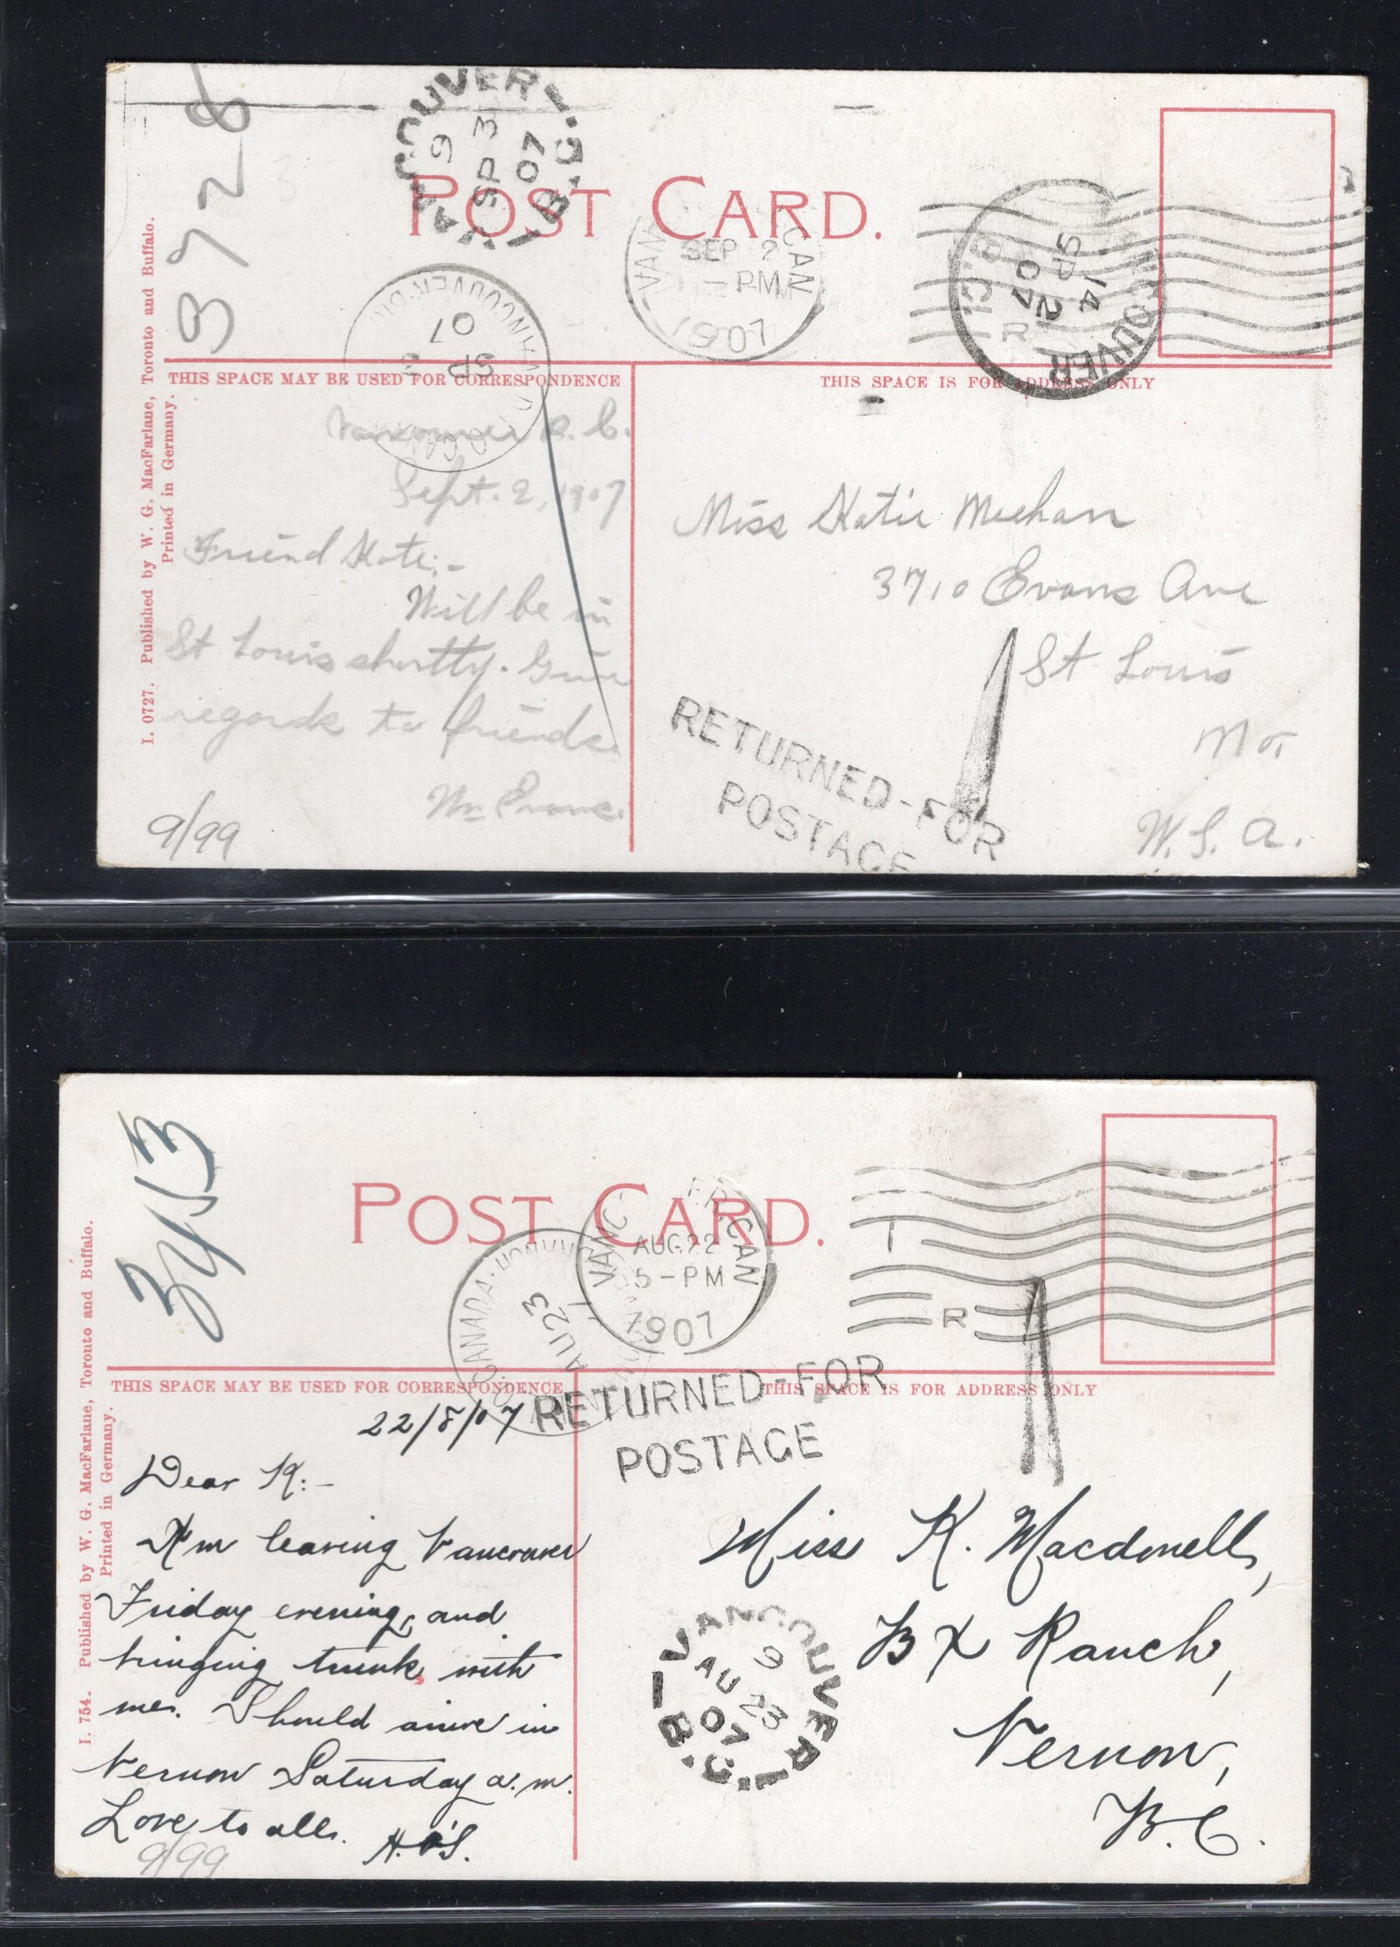 3728
VANCOUVER, B.C.
9
SP 3
07
POST CARD.
VAN CAN
SEP 2
- PM
1907
VANCOUVER
B.C.
14
SP 2
07
R
SP
07
I. 0727. Published by W. G. MacFarlane, Toronto and Buffalo.
Printed in Germany.
THIS SPACE MAY BE USED FOR CORRESPONDENCE
THIS SPACE IS FOR ADDRESS ONLY
Vancouver B.C.
Sept. 2, 1907
Friend Kate:-
Will be in
St Louis shortly. Give
regards to friends.
Wm Evans.
9/99
Miss Katie Meehan
3710 Evans Ave
St Louis
Mo.
U.S.A.
RETURNED-FOR
POSTAGE
1
3453
POST CARD.
VANC ER.CAN
AUG 22
5-PM
1907
CANADA
AU 23
T
R
I. 754. Published by W. G. MacFarlane, Toronto and Buffalo.
Printed in Germany.
THIS SPACE MAY BE USED FOR CORRESPONDENCE
THIS SPACE IS FOR ADDRESS ONLY
RETURNED-FOR
POSTAGE
1
22/8/07
Dear K:-
I'm leaving Vancouver
Friday evening, and
bringing trunk with
me. Should arrive in
Vernon Saturday a.m.
Love to all.
H. O'S.
9/99
Miss K. Macdonell,
BX Ranch,
Vernon,
B.C.
VANCOUVER
B.C.
9
AU 23
07